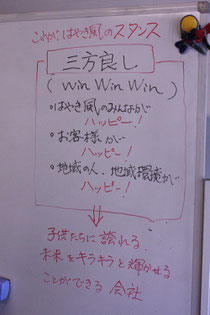 これが、はやき風のスタンス
三方良し
(win win win)
・はやき風のみんなが
ハッピー!
・お客様が
ハッピー!
・地域の人、地域環境が
ハッピー!
子供たちに誇れる
未来をキラキラと輝かせる
ことができる会社